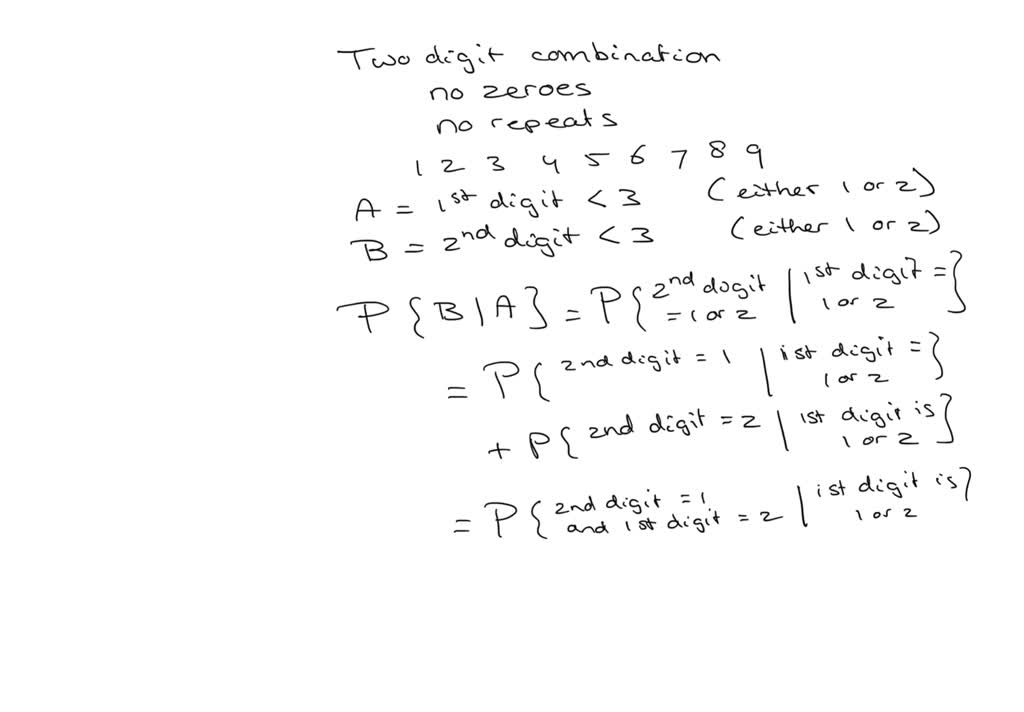 Two digit combination
no zeroes
no repeats
1 2 3 4 5 6 7 8 9
A = 1st digit < 3 (either 1 or 2)
B = 2nd digit < 3 (either 1 or 2)
P { B | A } = P { 2nd dogit = 1 or 2 | 1st digit = 1 or 2 }
= P { 2nd digit = 1 | 1st digit = 1 or 2 }
+ P { 2nd digit = 2 | 1st digit is 1 or 2 }
= P { 2nd digit = 1 and 1st digit = 2 | 1st digit is 1 or 2 }